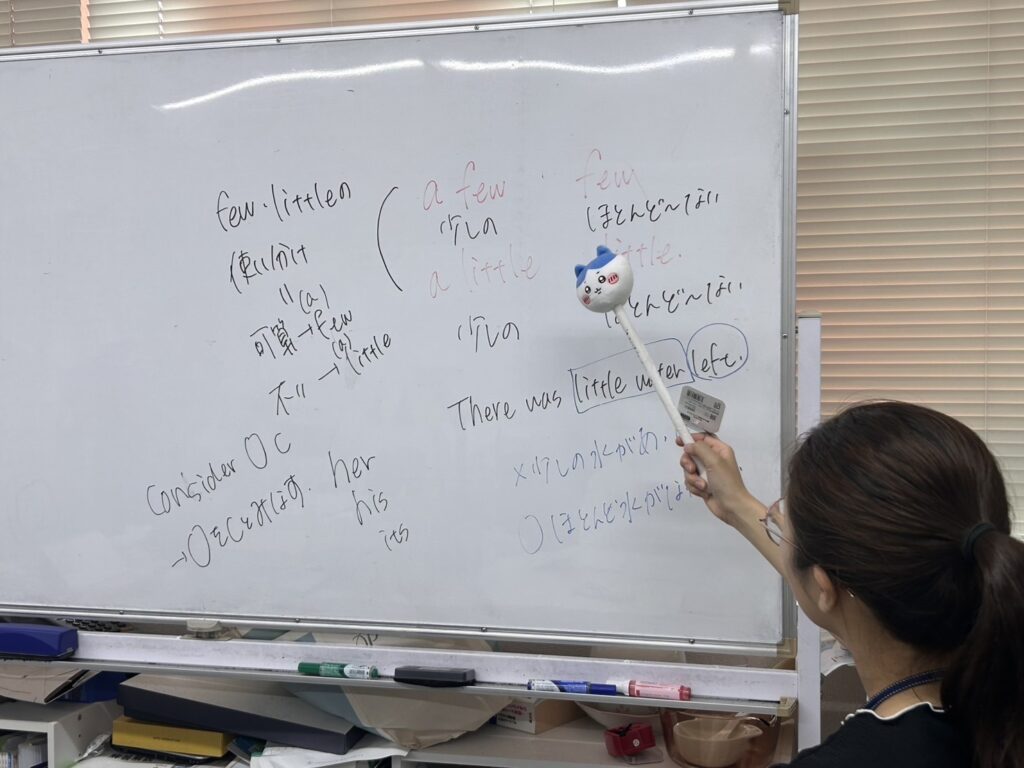 few・littleの
使い分け
〃(a)
可算→few
(a)
不〃→little
a few
少しの
a little
少しの
few
ほとんど〜ない
little.
ほとんど〜ない
There was little water left.
×少しの水があ
○ほとんど水がな
consider O C
→OをCとみなす.
her
his
its